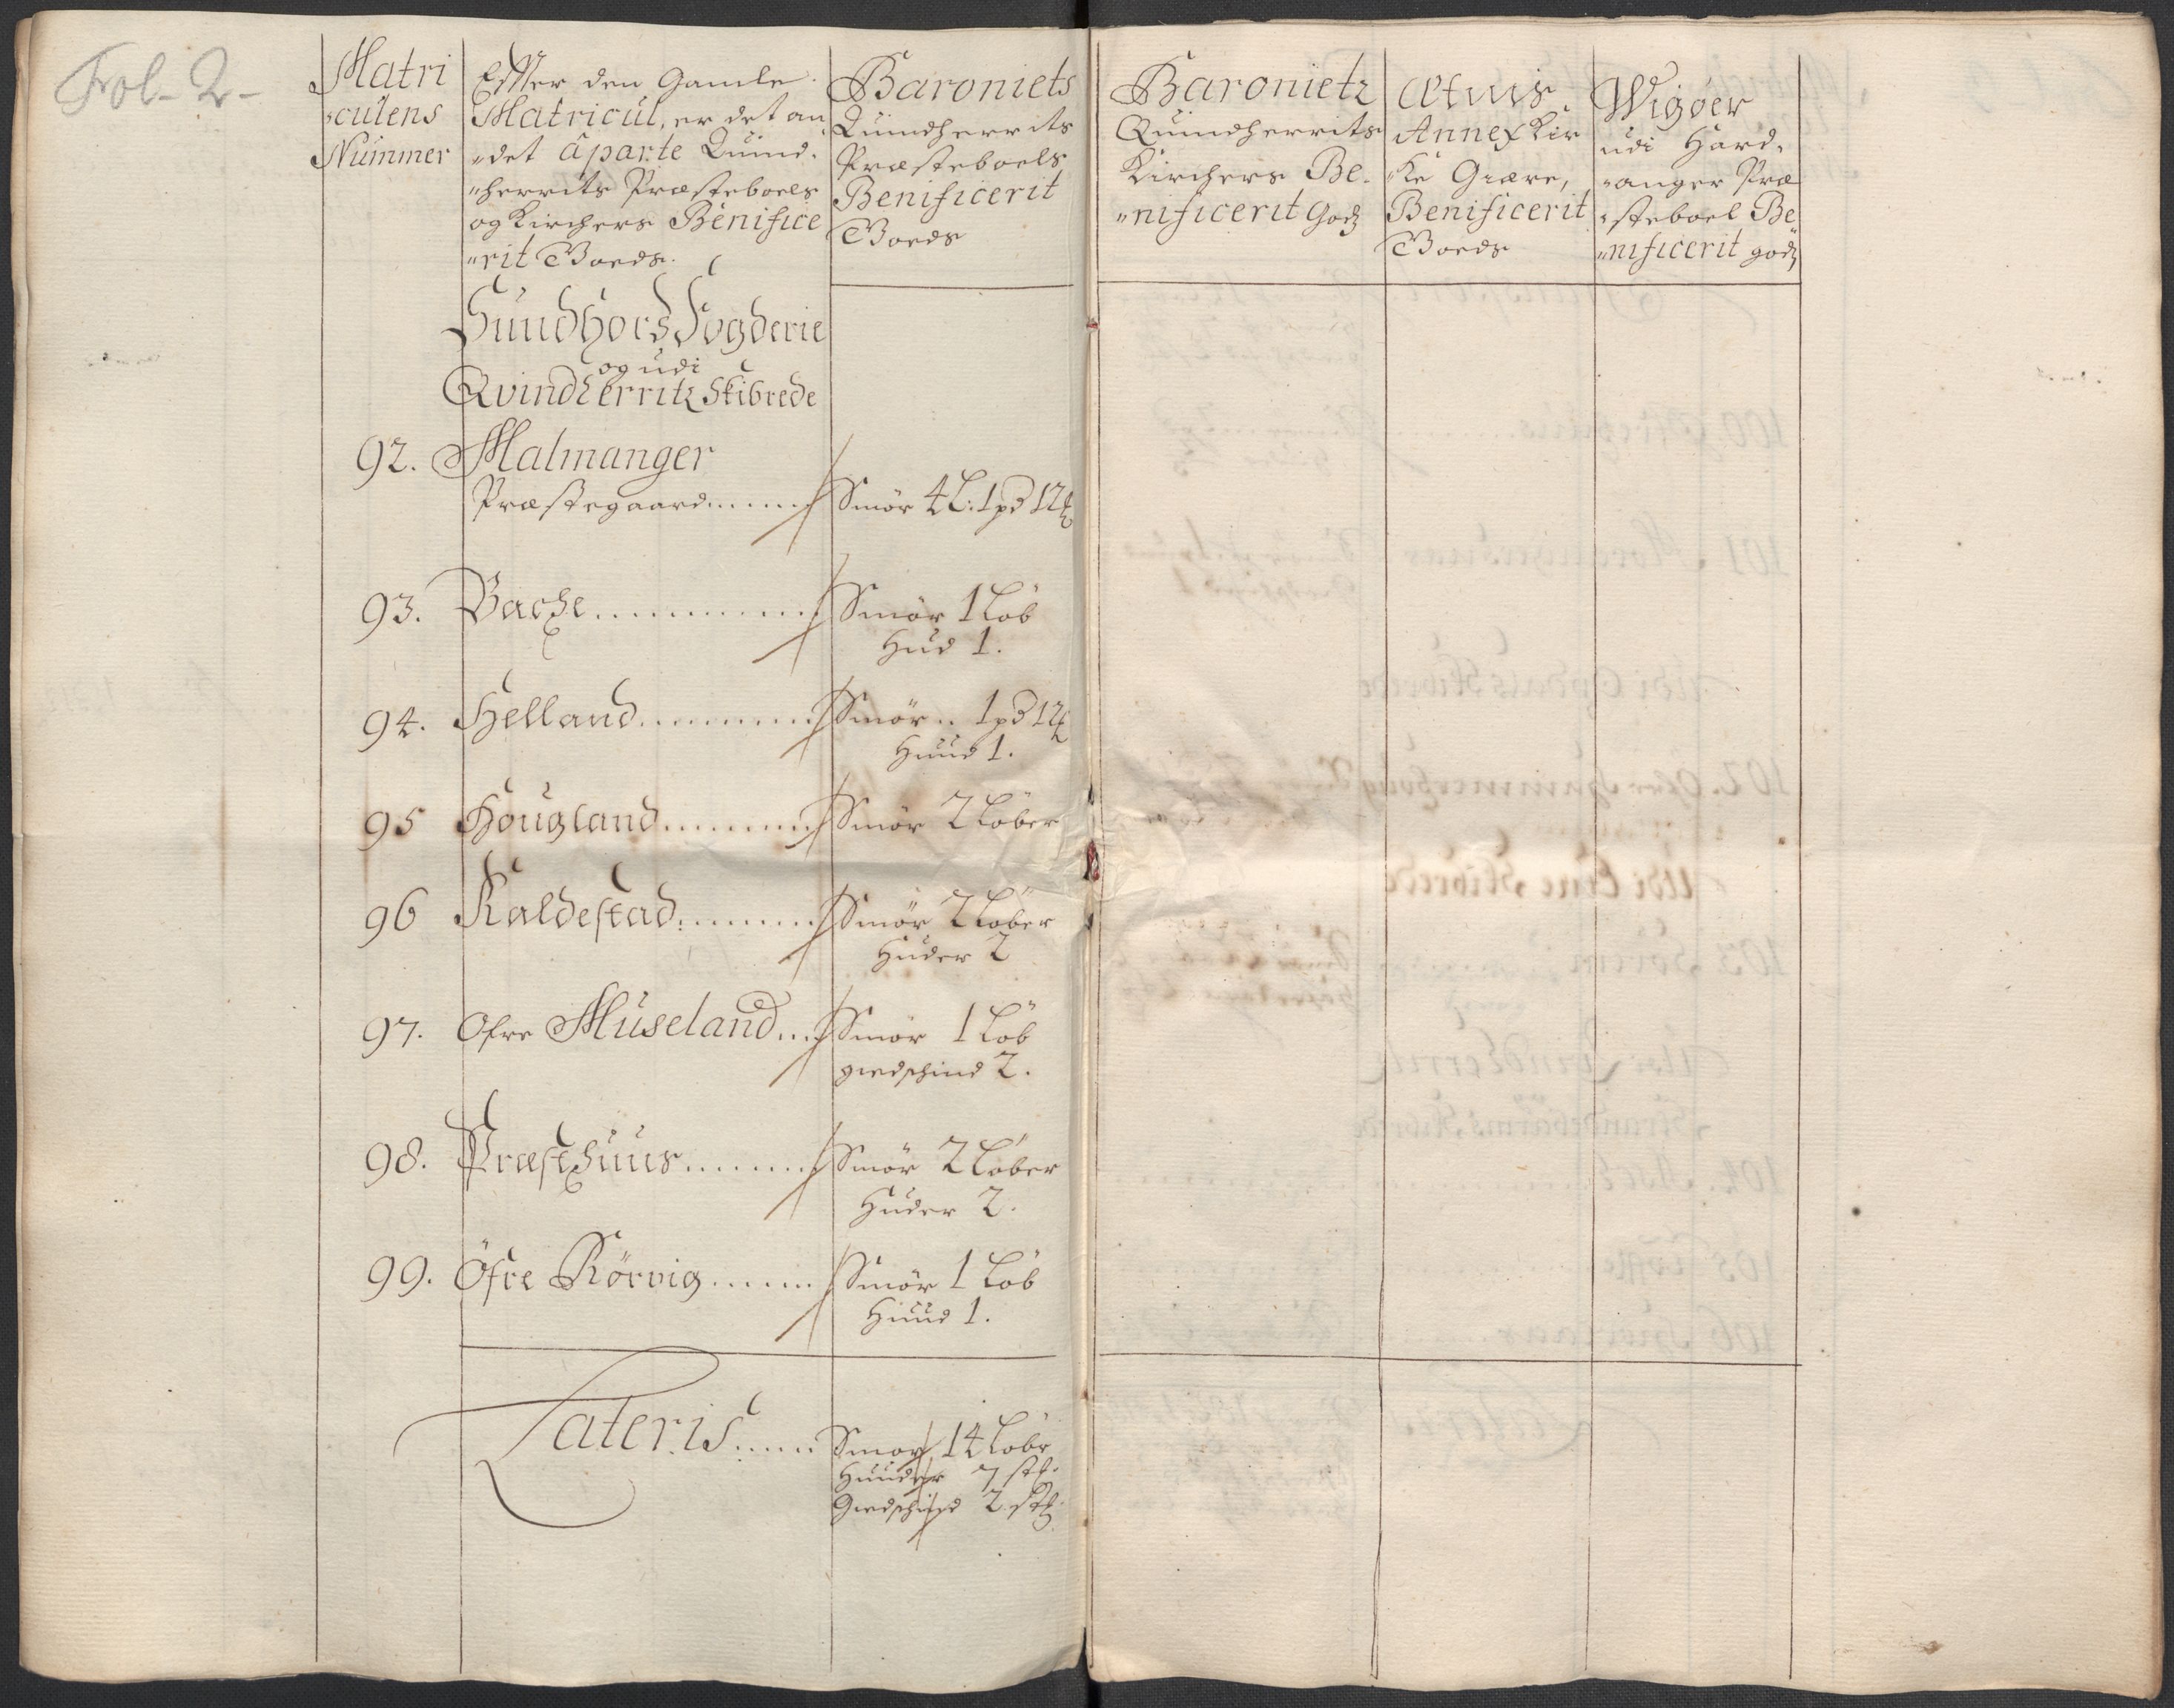 Fol- 2-
Matri
"culens
Nummer
Effter den Gamle
Matricul, er det an
"det aparte Quind-
"herrits Præsteboels
og Kirchers Benifice
"rit Goeds.
Baroniets
Quindherrits
Præsteboels
Benificerit
Goeds
Baronietz
Quindherrits
Kirchers Be-
"nificerit Godz
Annex Kir
"ke Giære,
Benificerit
Goeds
Wigøer
udi Hard-
"anger Præ
"steboel Be
"nificerit godz
Sundhors Fogderie
og udi
Qvindherritz Skibrede
92. Malmanger
Præstegaard Smör 4 L: 1 pd 12
93. Bache Smör 1 Löb
Hud 1.
94. Helland Smör 1 pd 12
Huud 1.
95 Hougland Smör 2 Löber
96 Kaldestad Smör 2 Löber
Huder 2
97. Ofre Museland Smör 1 Löb
giedschind 2.
98. Præsthuus Smör 2 Löber
Huder 2.
99. Öfre Rörvig Smör 1 Löb
Huud 1.
Lateris Smör 14 Löbr
Huuder 7 stk.
Giedschind 2 stk.